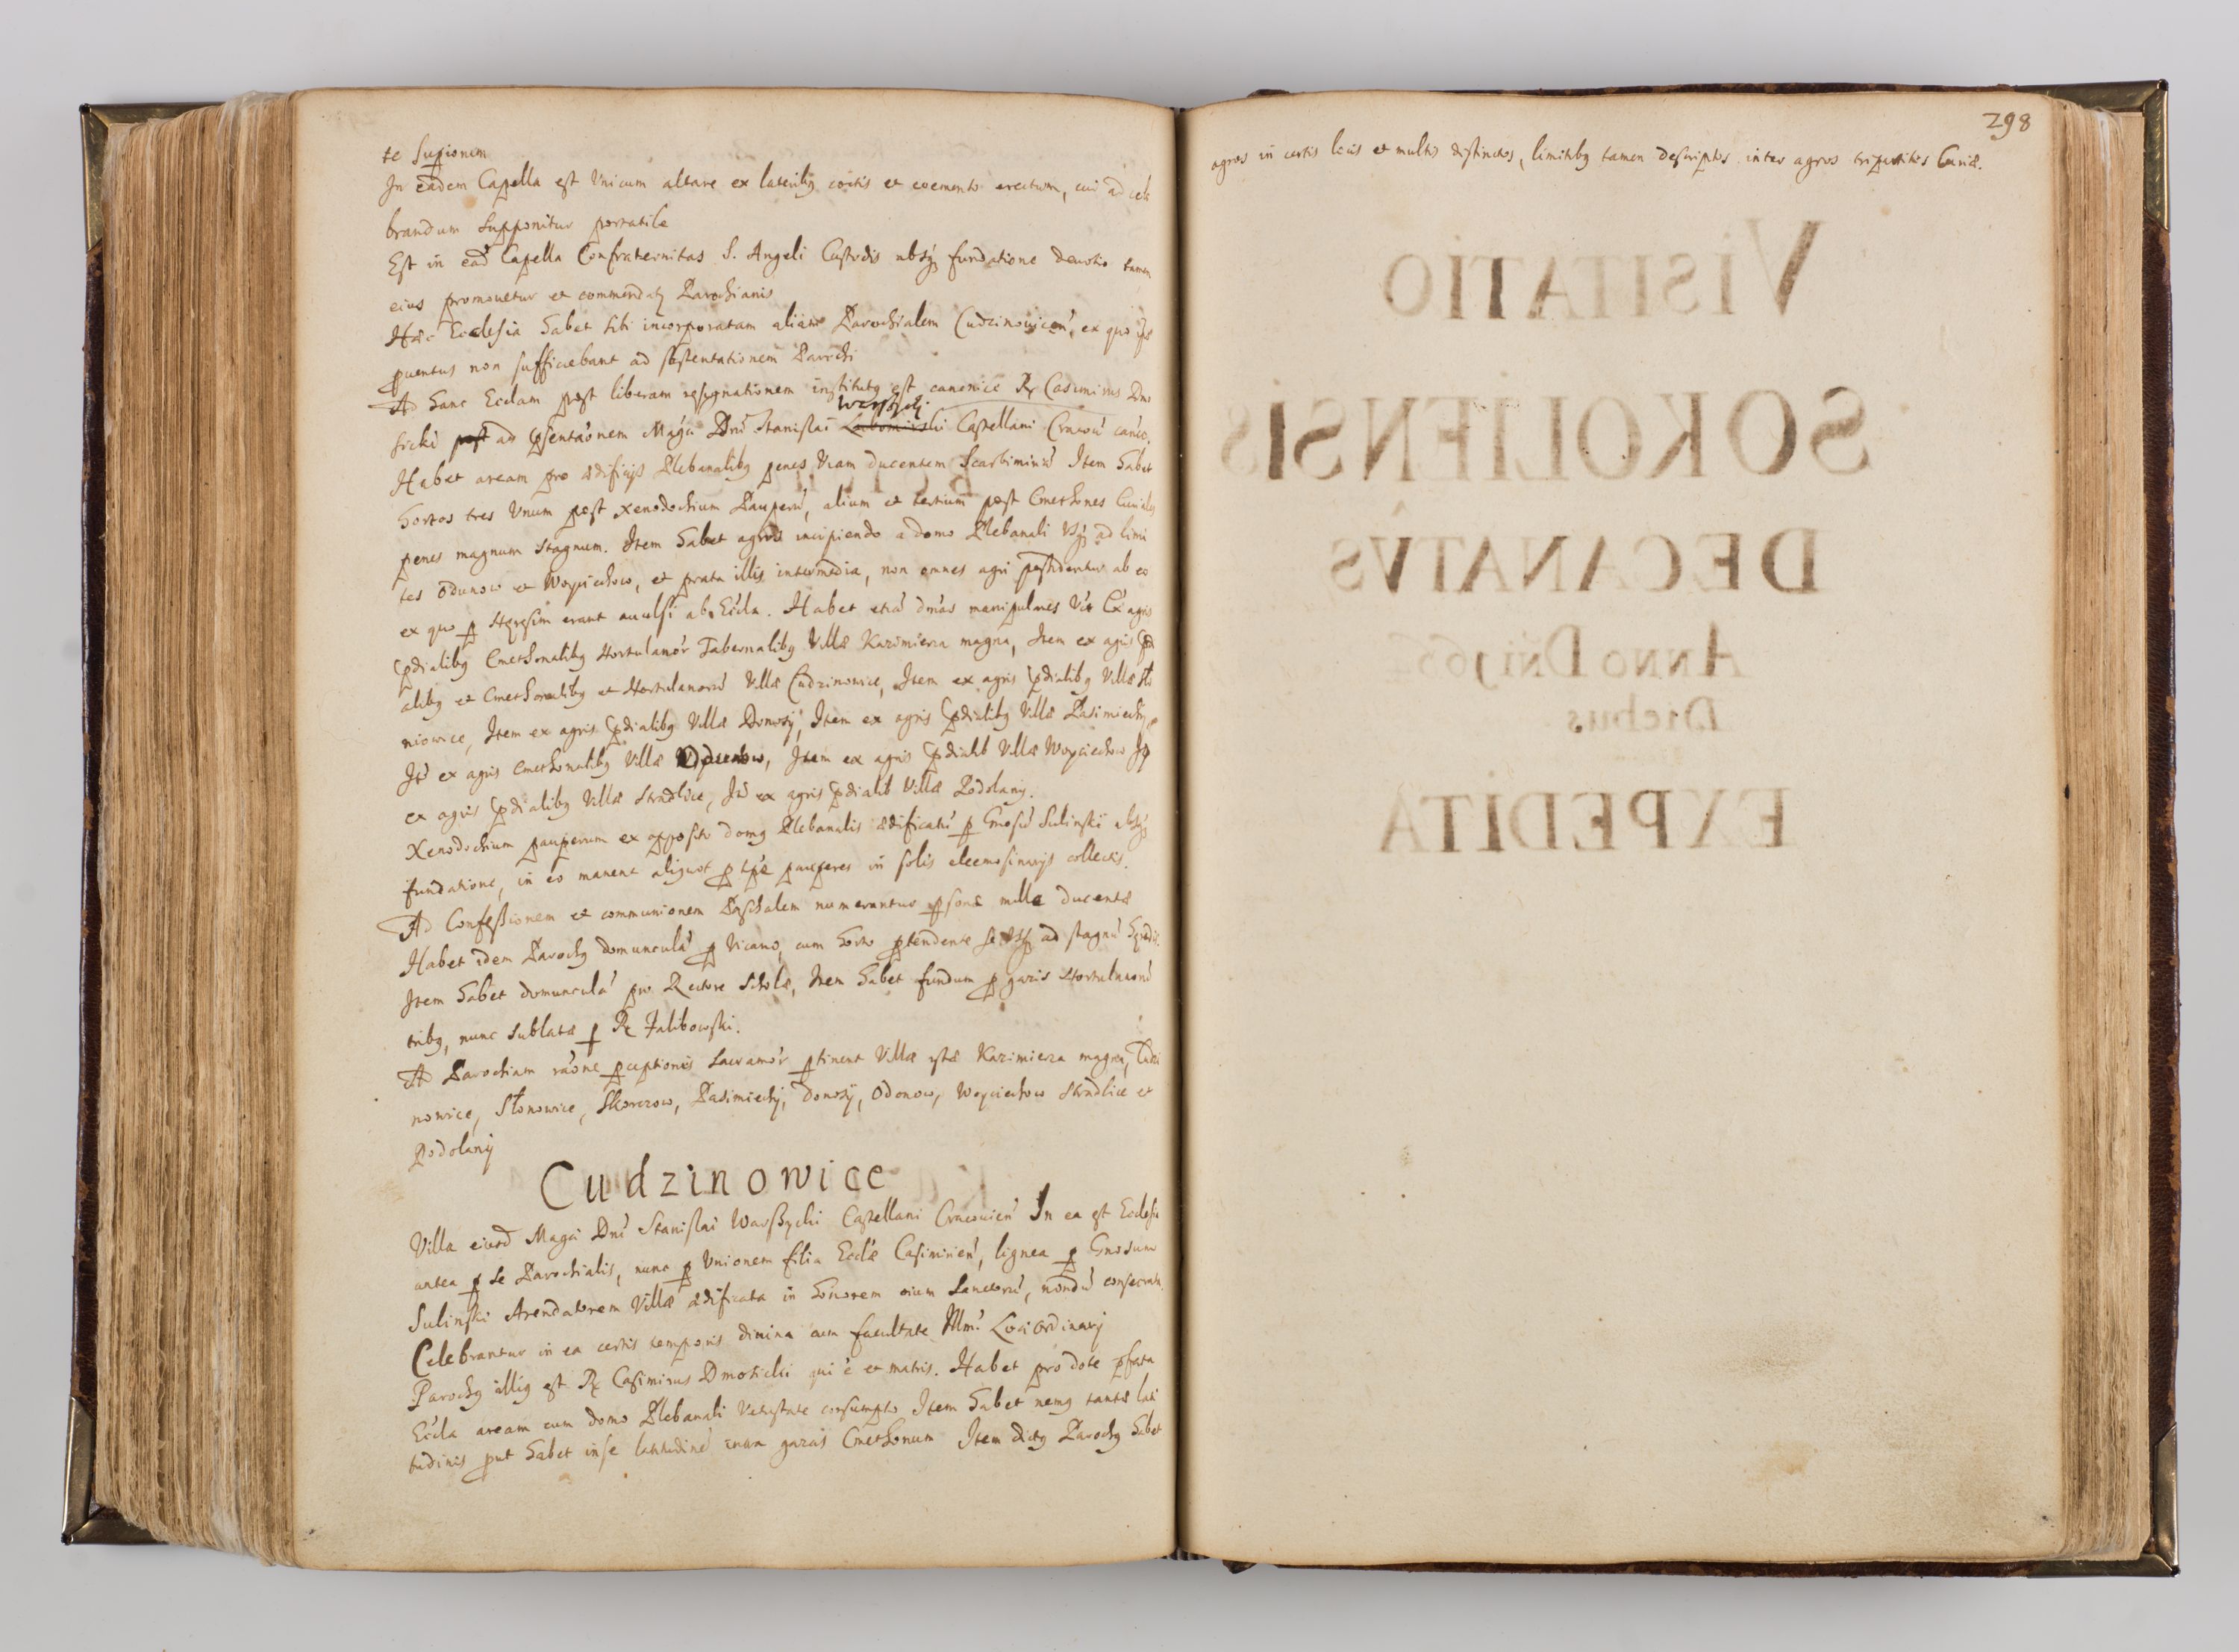 te Supionem
In eadem Capella est Unicum altare ex lateribq coctis et coemento erectum, cui ad cele
brandum supponitur portatile
Est in ead Capella Confraternitas S. Angeli Custodis absq fundatione devotio tamen
eius promouetur et commendatq Parochianis
Hæc Ecclesia habet sibi incorporatam aliam Parochialem Cudzinouicen, ex quo ipsæ
puentus non sufficiebant ad sustentationem Parochi
Ad hanc Ecclam post liberam resignationem institutq est canonice R Casimirus Dmo
sicki post ad psentaonem Magci Dni Stanislai Warszycki Castellani Cracou
Habet aream pro ædificijs Plebanalibq penes Viam ducentem Scarbimiriu Item habet
hortos tres Unum post xenodochium Pauperu, alium et tertium post Cmethones
penes magnum stagnum. Item habet agros incipiendo a domo Plebanali Usq ad limi
tes Odunow et Woyciechow, et prata illis intermedia, non omnes agri possidentur ab eo
ex quo p Heresim erant auulsi ab Eccla. Habet etia dmas manipulares Vct Ex agris
pdialibq Cmethonalibq Hortulanor Tabernalibq Villæ Kazimierza magna, Item ex agris pdi
alibq et Cmethonalibq et Hortulanoru Villæ Cudzinowice, Item ex agris pdialibq Villæ Sło
niowice, Item ex agris pdialibq Villæ Donosÿ, Item ex agris pdialibq Villæ Pasimiechÿ,
Ite ex agris cmethonalibq Villæ Odonow, Item ex agris pdialib Villæ Woyciechow It
ex agris pdialibq Villæ Stradlice, It ex agris pdialib Villæ Podolany.
Xenodochium pauperum ex opposito domq Plebanalis ædificatu p Gnosu Sulinski absq
fundatione, in eo manent aliquot p tpe pauperes in solis eleemosinarijs collectis.
Ad Confessionem et communionem Paschalem numerantur psonæ mille ducentæ
Habet idem Parochq domuncula p Vicario, cum horto ptendente se Usq ad stagnu
Item habet domuncula pro Rectore Scholæ, Item habet fundum p gazis Hortulanoru
tribq, nunc sublatæ p R Falibowski.
Ad Parochiam raone pceptionis Sacramor ptinent Villæ istæ Kazimierza magna, Cudzi
nowice, Słonowice, Skorczow, Pasimiechÿ, Donosÿ, Odonow, Woyciechow Stradlice et
Podolanÿ
Cudzinowice
Villa eiusd Magci Dni Stanislai Warszycki Castellani Cracouien In ea est Ecclesia
antea p se Parochialis, nunc p Unionem filia Ecclæ Casimirien, lignea p Gnosum
Sulinski Arendatorem Villæ ædificata in honorem oium Sanctoru, nondu consecrata.
Celebrantur in ea certis temporis diuina cum facultate Illmi Loci Ordinarij
Parochq illiq est R Casimirus Dmosicki qui e et matris. Habet pro dote pfata
Eccla aream cum domo Plebanali Vetustate consumpto Item habet nemq tantæ lati
tudinis put habet in se latitudine gazas Cmethonum Item dictq Parochq habet
298
agros in certis locis et multis distinctos, limitibq tamen descriptos inter agros tripartitos Curiæ.
VISITATIO
SOKOLIENSIS
DECANATVS
ANNO DNI 1664
Diebus
EXPEDITA